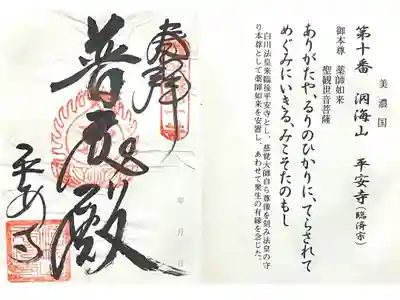 美濃国
第十番 洞海山 平安寺(臨済宗)
御本尊 薬師如来
聖観世音菩薩
ありがたや、るりのひかりに、てらされて
めぐみにいきる、みこそたのもし
白川法皇来臨後平安寺とし、慈覚大師自ら尊像を刻み法皇の守
り本尊として薬師如来を安置し、あわせて衆生の有縁を念じた。
奉拝
年 月 日
平安寺